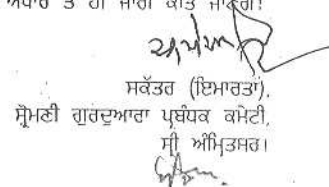 ਅਧਾਰ ਤੇ ਹੀ ਜਾਰੀ ਕੀਤੇ ਜਾਣਗੇ।
ਸਕੱਤਰ (ਇਮਾਰਤਾਂ),
ਸ਼੍ਰੋਮਣੀ ਗੁਰਦੁਆਰਾ ਪ੍ਰਬੰਧਕ ਕਮੇਟੀ,
ਸ੍ਰੀ ਅੰਮ੍ਰਿਤਸਰ।